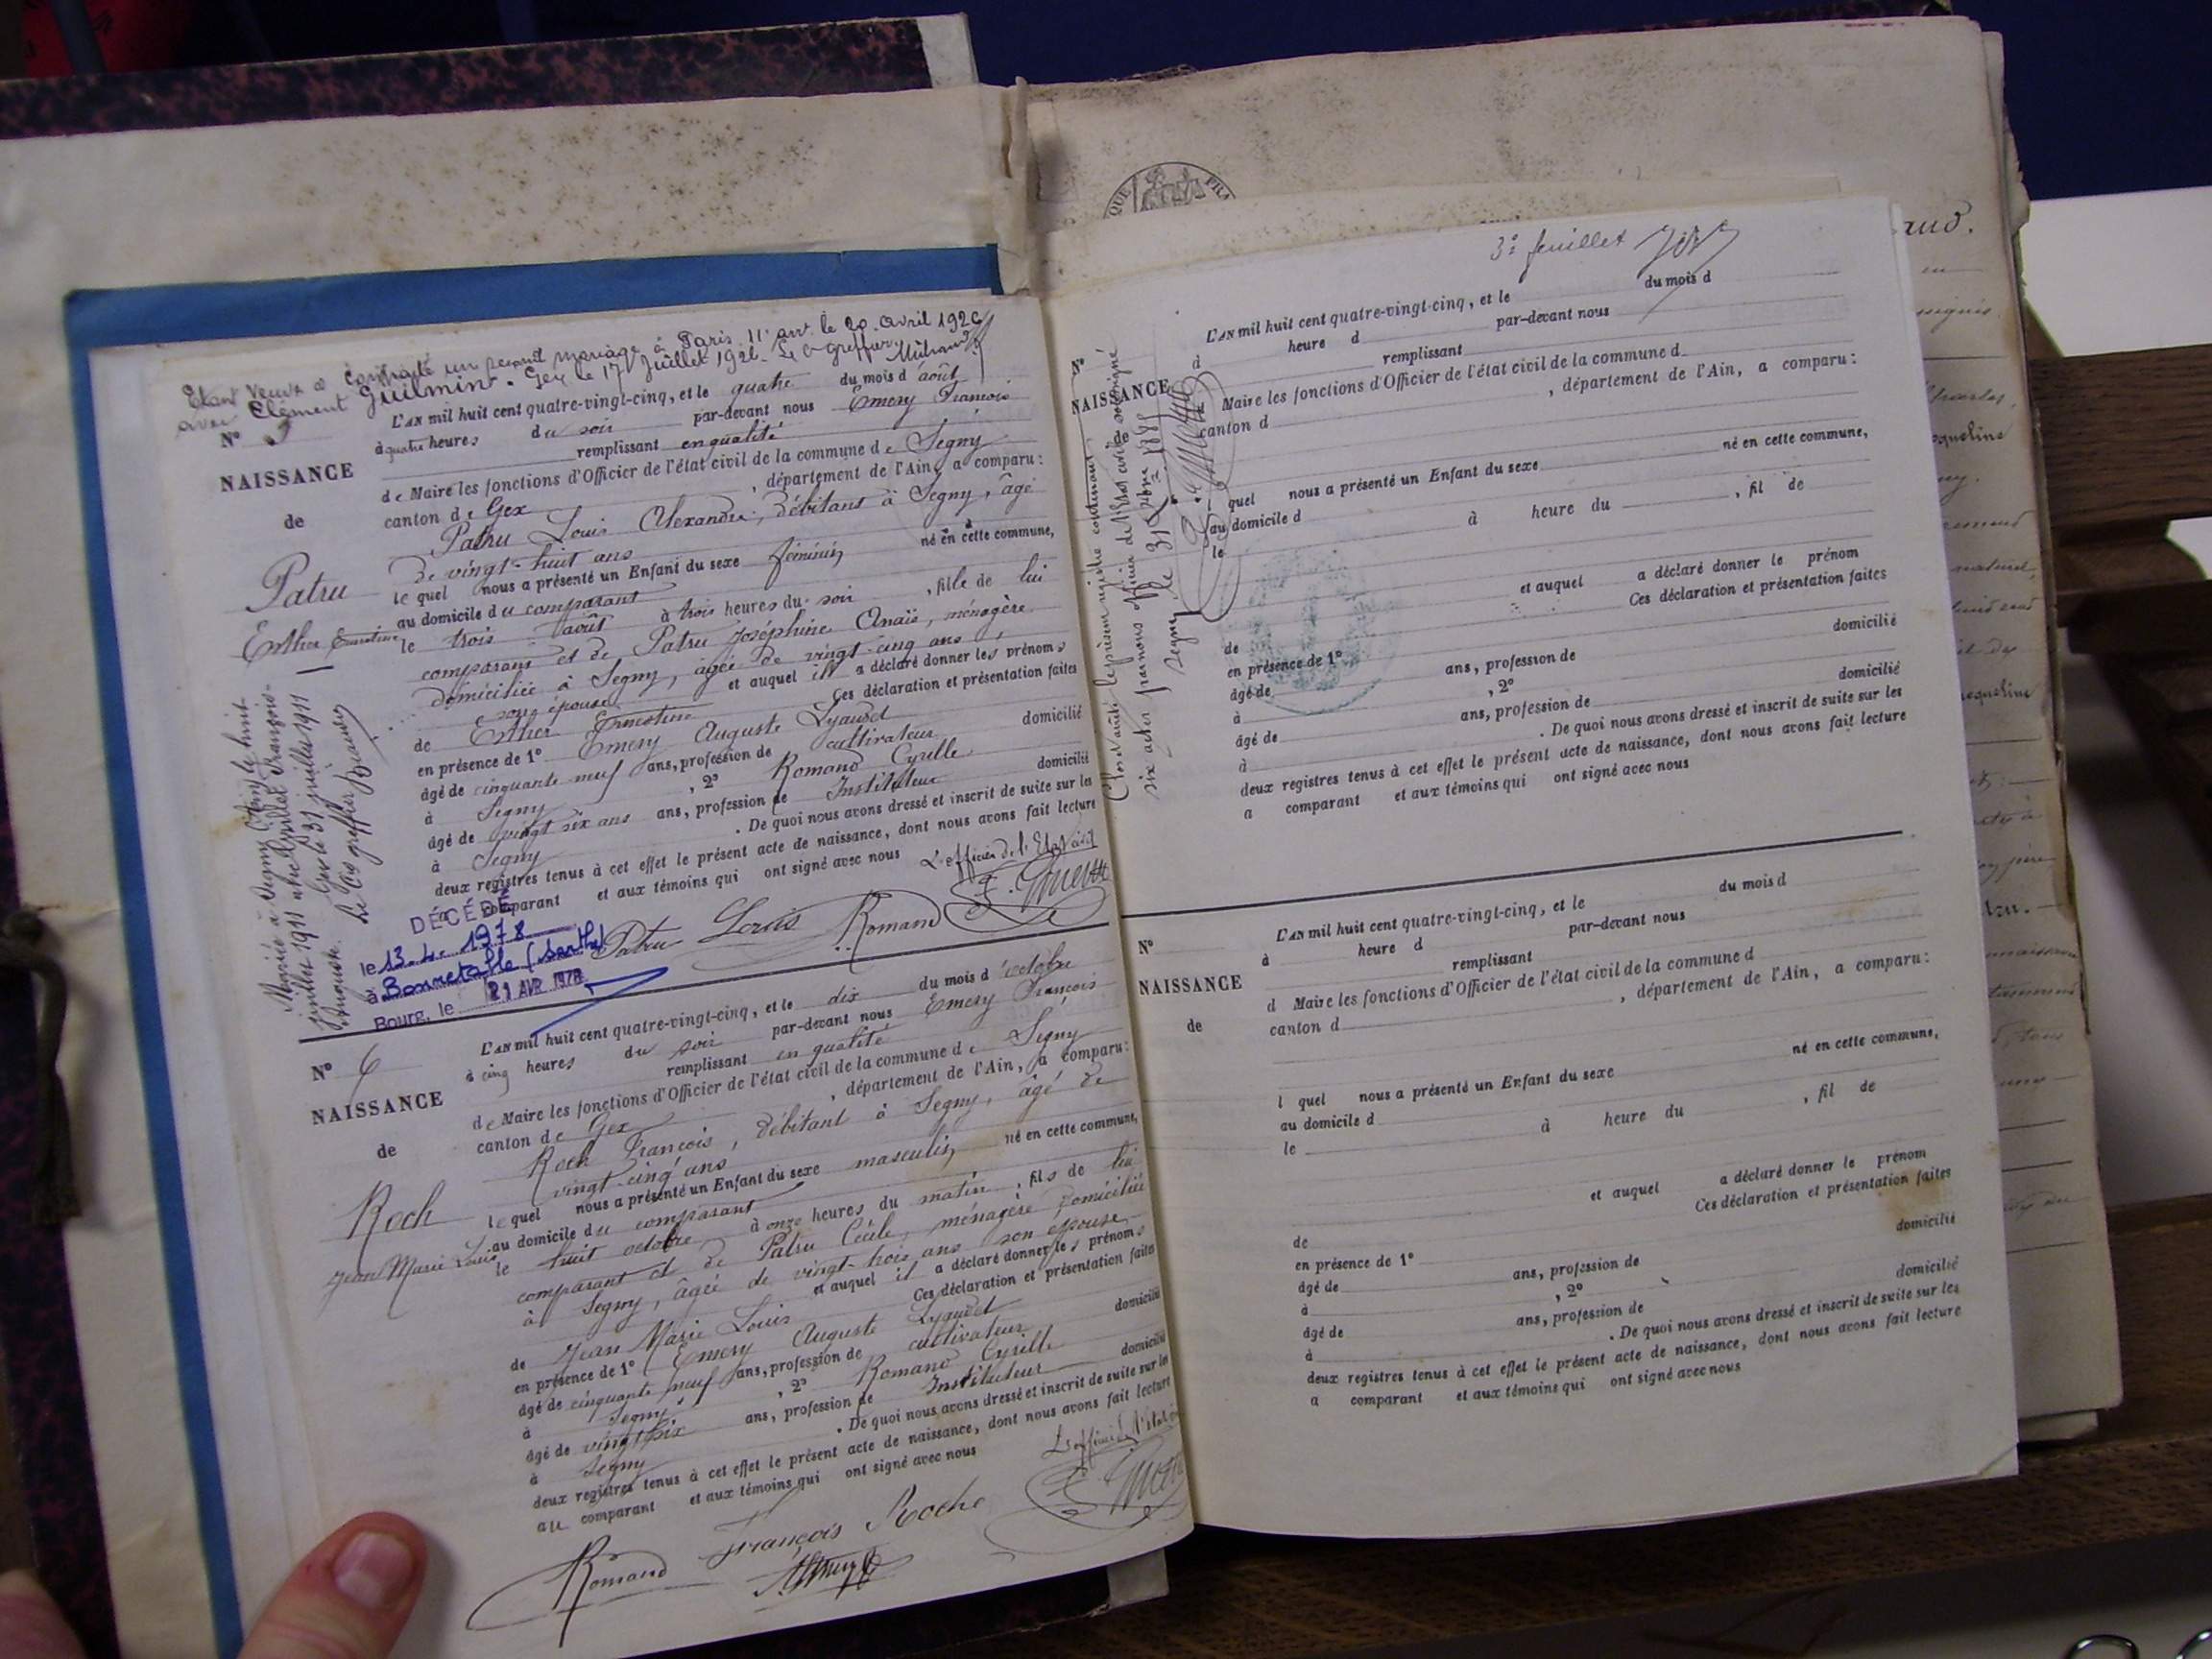 Etant veuve a contracté un second mariage à Paris 11e arrt le 20 avril 1926
avec Clément Guilmin. Gex le 17 Juillet 1926. Le Greffier
N° 5
NAISSANCE
de
Patru
Esther Ernestine
L'AN mil huit cent quatre-vingt-cinq, et le quatre du mois d'août
à quatre heures du soir par-devant nous Emery François
remplissant en qualité
de Maire les fonctions d'Officier de l'état civil de la commune de Segny
canton de Gex, département de l'Ain, a comparu:
Patru Louis Alexandre, débitant à Segny, âgé
de vingt-huit ans
lequel nous a présenté un Enfant du sexe féminin né en cette commune,
au domicile du comparant
le trois août à trois heures du soir, fille de lui
comparant et de Patru Joséphine Anaïs, ménagère
domiciliée à Segny, âgée de vingt-cinq ans,
son épouse et auquel il a déclaré donner les prénoms
de Esther Ernestine Ces déclaration et présentation faites
en présence de 1° Emery Auguste Lyaudet
âgé de cinquante neuf ans, profession de cultivateur domicilié
à Segny, 2° Romand Cyrille
âgé de vingt six ans ans, profession de Instituteur domicilié
à Segny. De quoi nous avons dressé et inscrit de suite sur les
deux registres tenus à cet effet le présent acte de naissance, dont nous avons fait lecture
au comparant et aux témoins qui ont signé avec nous
L'officier de l'Etat civil
Patru Louis Romand
Mariée à Segny (Ain) le huit
juillet 1911 avec François
Auguste. Gex le 31 juillet 1911
Le Cis greffier
DÉCÉDÉ
le 13.4.1978
à Bonnetable (Sarthe)
Bourg, le 21 AVR 1978
N° 6
NAISSANCE
de
Roch
Jean Marie Louis
L'AN mil huit cent quatre-vingt-cinq, et le dix du mois d'octobre
à cinq heures du soir par-devant nous Emery François
remplissant en qualité
de Maire les fonctions d'Officier de l'état civil de la commune de Segny
canton de Gex, département de l'Ain, a comparu:
Roch François, débitant à Segny, âgé de
vingt-cinq ans
lequel nous a présenté un Enfant du sexe masculin né en cette commune,
au domicile du comparant
le huit octobre à onze heures du matin, fils de lui
comparant et de Patru Cécile, ménagère domiciliée
à Segny, âgée de vingt-trois ans son épouse
et auquel il a déclaré donner les prénoms
de Jean Marie Louis Ces déclaration et présentation faites
en présence de 1° Emery Auguste Lyaudet
âgé de cinquante neuf ans, profession de cultivateur domicilié
à Segny, 2° Romand Cyrille
âgé de vingt six ans, profession de Instituteur domicilié
à Segny. De quoi nous avons dressé et inscrit de suite sur les
deux registres tenus à cet effet le présent acte de naissance, dont nous avons fait lecture
au comparant et aux témoins qui ont signé avec nous
L'officier de l'état
Romand François Roche
3e feuillet
N°
NAISSANCE
de
L'AN mil huit cent quatre-vingt-cinq, et le du mois d
à heure d par-devant nous
remplissant
Maire les fonctions d'Officier de l'état civil de la commune d
canton d, département de l'Ain, a comparu:
l quel nous a présenté un Enfant du sexe né en cette commune,
au domicile d
le à heure du, fil de
et auquel a déclaré donner le prénom
de Ces déclaration et présentation faites
en présence de 1°
âgé de ans, profession de domicilié
à, 2°
âgé de ans, profession de domicilié
à. De quoi nous avons dressé et inscrit de suite sur les
deux registres tenus à cet effet le présent acte de naissance, dont nous avons fait lecture
a comparant et aux témoins qui ont signé avec nous
Clos et arrêté le présent registre contenant
six actes par nous officier de l'état civil soussigné
Segny le 31 Xbre 1885
N°
NAISSANCE
de
L'AN mil huit cent quatre-vingt-cinq, et le du mois d
à heure d par-devant nous
remplissant
d Maire les fonctions d'Officier de l'état civil de la commune d
canton d, département de l'Ain, a comparu:
l quel nous a présenté un Enfant du sexe né en cette commune,
au domicile d
le à heure du, fil de
et auquel a déclaré donner le prénom
de Ces déclaration et présentation faites
en présence de 1°
âgé de ans, profession de domicilié
à, 2°
âgé de ans, profession de domicilié
à. De quoi nous avons dressé et inscrit de suite sur les
deux registres tenus à cet effet le présent acte de naissance, dont nous avons fait lecture
a comparant et aux témoins qui ont signé avec nous